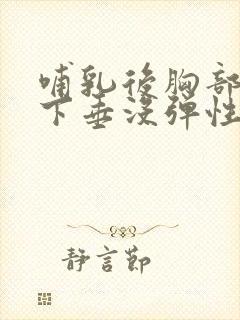 哺乳後胸部
下垂沒彈性
靜言節